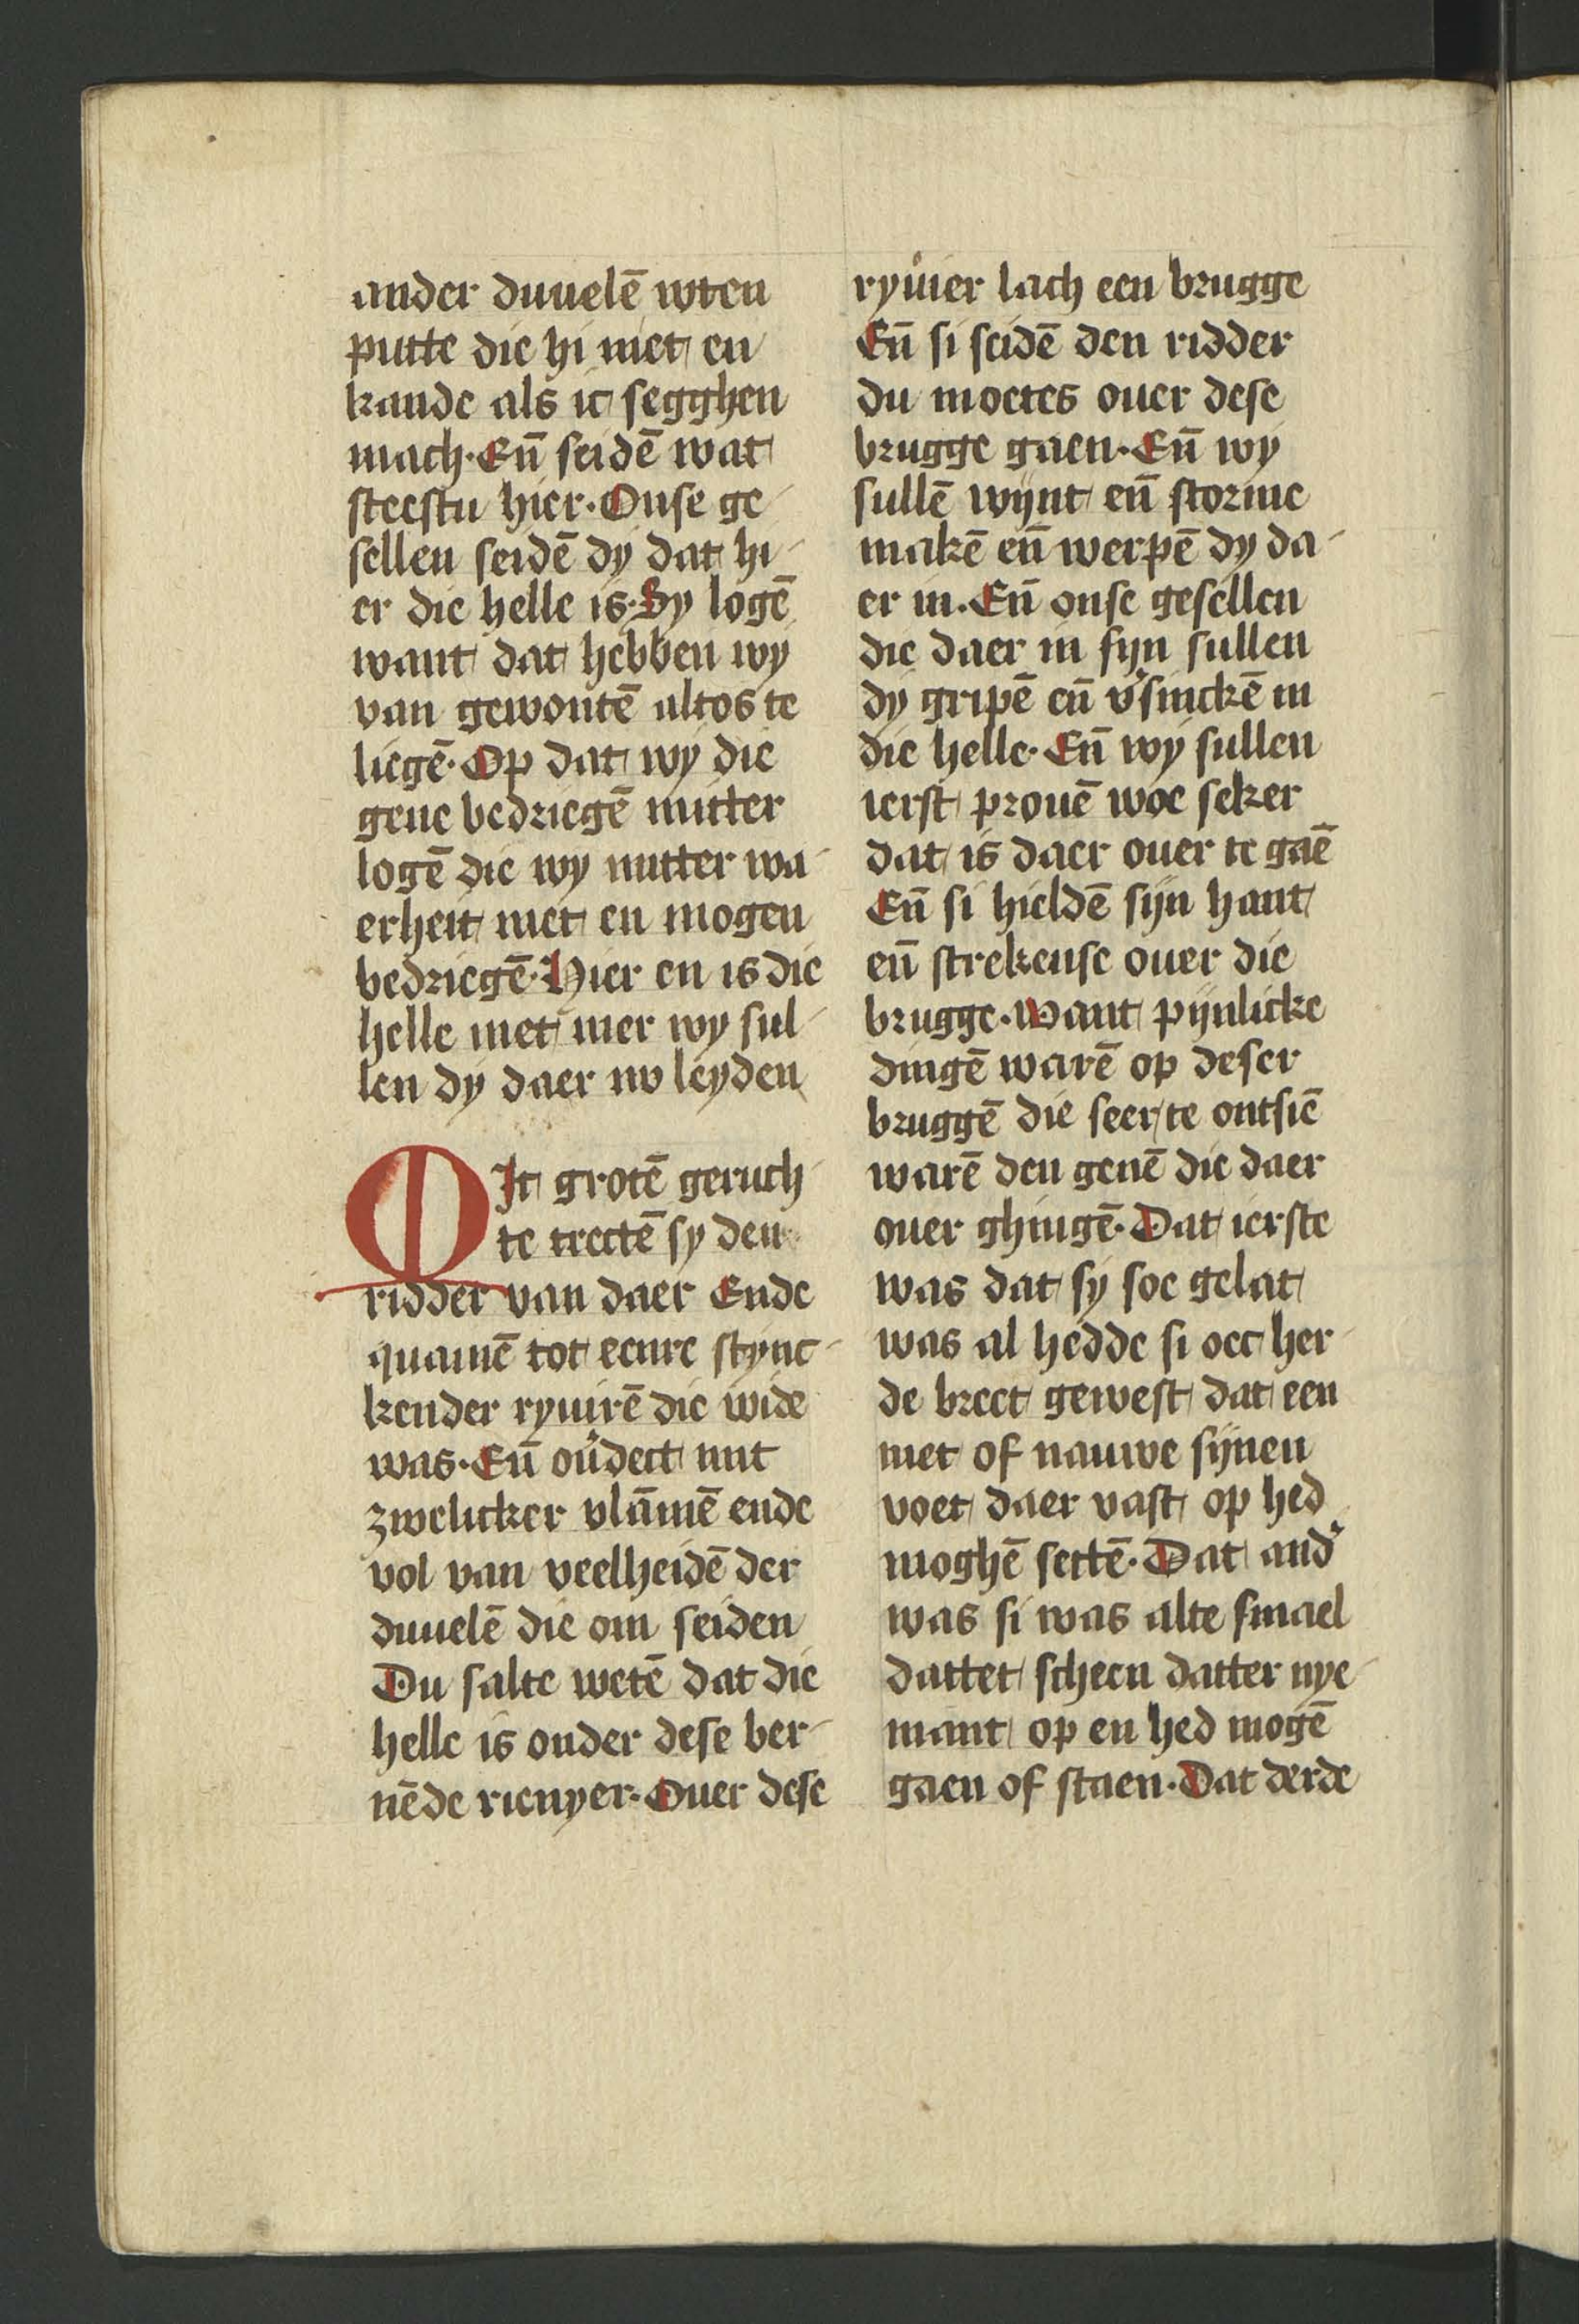 ander duuelē wten
putte die hi niet en
kande als ic segghen
mach. Eñ seidē wat
steestu hier. Onse ge
sellen seidē dy dat hi
er die helle is. Sy logē
want dat hebben wy
van gewontē altos te
liegē. Op dat wy die
gene bedriegē mitter
logē die wy mitter wa
erheit niet en mogen
bedriegē. Hier en is die
helle niet mer wy sul
len dy daer nv leyden
MIt grotē geruch
te trectē sy den
ridder van daer Ende
quamē tot eenre stync
kender ryuirē die wide
was. Eñ ou᷑dect mit
zwelicker vlāmē ende
vol van veelheidē der
duuelē die om seiden
Du salte wetē dat die
helle is onder dese ber
nēde rieuyer. Ouer dese
ryuier lach een brugge
Eñ si seidē den ridder
du moetes ouer dese
brugge gaen. Eñ wy
sullē wijnt eñ storme
makē eñ werpē dy da
er in. Eñ onse gesellen
die daer in sijn sullen
dy gripē eñ v᷑sinckē in
die helle. Eñ wy sullen
ierst prouē woe seker
dat is daer ouer te gaē
Eñ si hieldē sijn hant
eñ strekense ouer die
brugge. Want pijnlicke
dingē warē op deser
bruggē die seer te ontsiē
warē den genē die daer
ouer ghingē. Dat ierste
was dat sy soe gelat
was al hedde si oec her
de breet gewest dat een
niet of nauwe sijnen
voet daer vast op hed
moghē settē. Dat and᷑
was si was alte smael
dattet scheen datter nye
mant op en hed mogē
gaen of staen. Dat derde